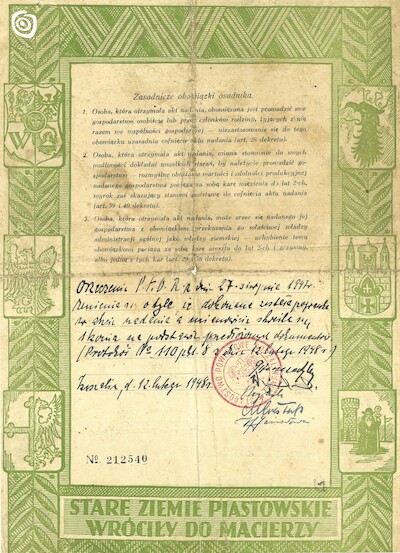 Zasadnicze obowiązki osadnika.
1. Osoba, która otrzymała akt nadania, obowiązana jest prowadzić swe
gospodarstwo osobiście lub przez członków rodziny, żyjących z nią
razem we wspólności gospodarczej — niezastosowanie się do tego
obowiązku uzasadnia cofnięcie aktu nadania (art. 26 dekretu).
2. Osoba, która otrzymała akt nadania, winna stosownie do swych
możliwości dokładać wszelkich starań, by należycie prowadzić go-
spodarstwo — rozmyślne obniżanie wartości i zdolności produkcyjnej
nadanego gospodarstwa pociąga za sobą karę więzienia do lat 2-ch,
wyrok zaś skazujący stanowi podstawę do cofnięcia aktu nadania
(art. 39 i 40 dekretu).
3. Osoba, która otrzymała akt nadania, może zrzec się nadanego jej
gospodarstwa z obowiązkiem przekazania go właściwej władzy
administracji ogólnej jako władzy ziemskiej — uchybienie temu
obowiązkowi pociąga za sobą karę aresztu do lat 2-ch i grzywny,
albo jedną z tych kar (art. 29 i 38 dekretu).
Orzeczenie P.K.O.R. z dnia 27 sierpnia 194
zmienia się o tyle, że dokonane zostaje
w akcie nadania a mianowicie skreśla się
na podstawie przedłożonych dokumentów
(Protokół No 110 pkt. 8 z dnia 12 lutego 1948 r.)
d. 12 lutego 1948 r.
No. 212540
STARE ZIEMIE PIASTOWSKIE
WRÓCIŁY DO MACIERZY